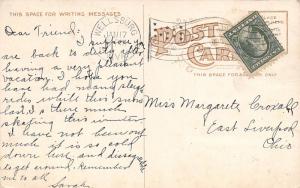 THIS SPACE FOR WRITING MESSAGES
WELLSBURG
JAN 17
POST
CARD
THIS SPACE FOR ADDRESS ONLY
Dear Friend
I suppose you
are back to duty after
having a very pleasant
vacation. I hope you
have had many sleigh
rides while this snow
last. Is there much
skating this winter
I have not been out
much it is so cold
down here and disagreeable
to get around. Remember
me to all
Sarah
Miss Margarets Croxall
East Liverpool
Ohio